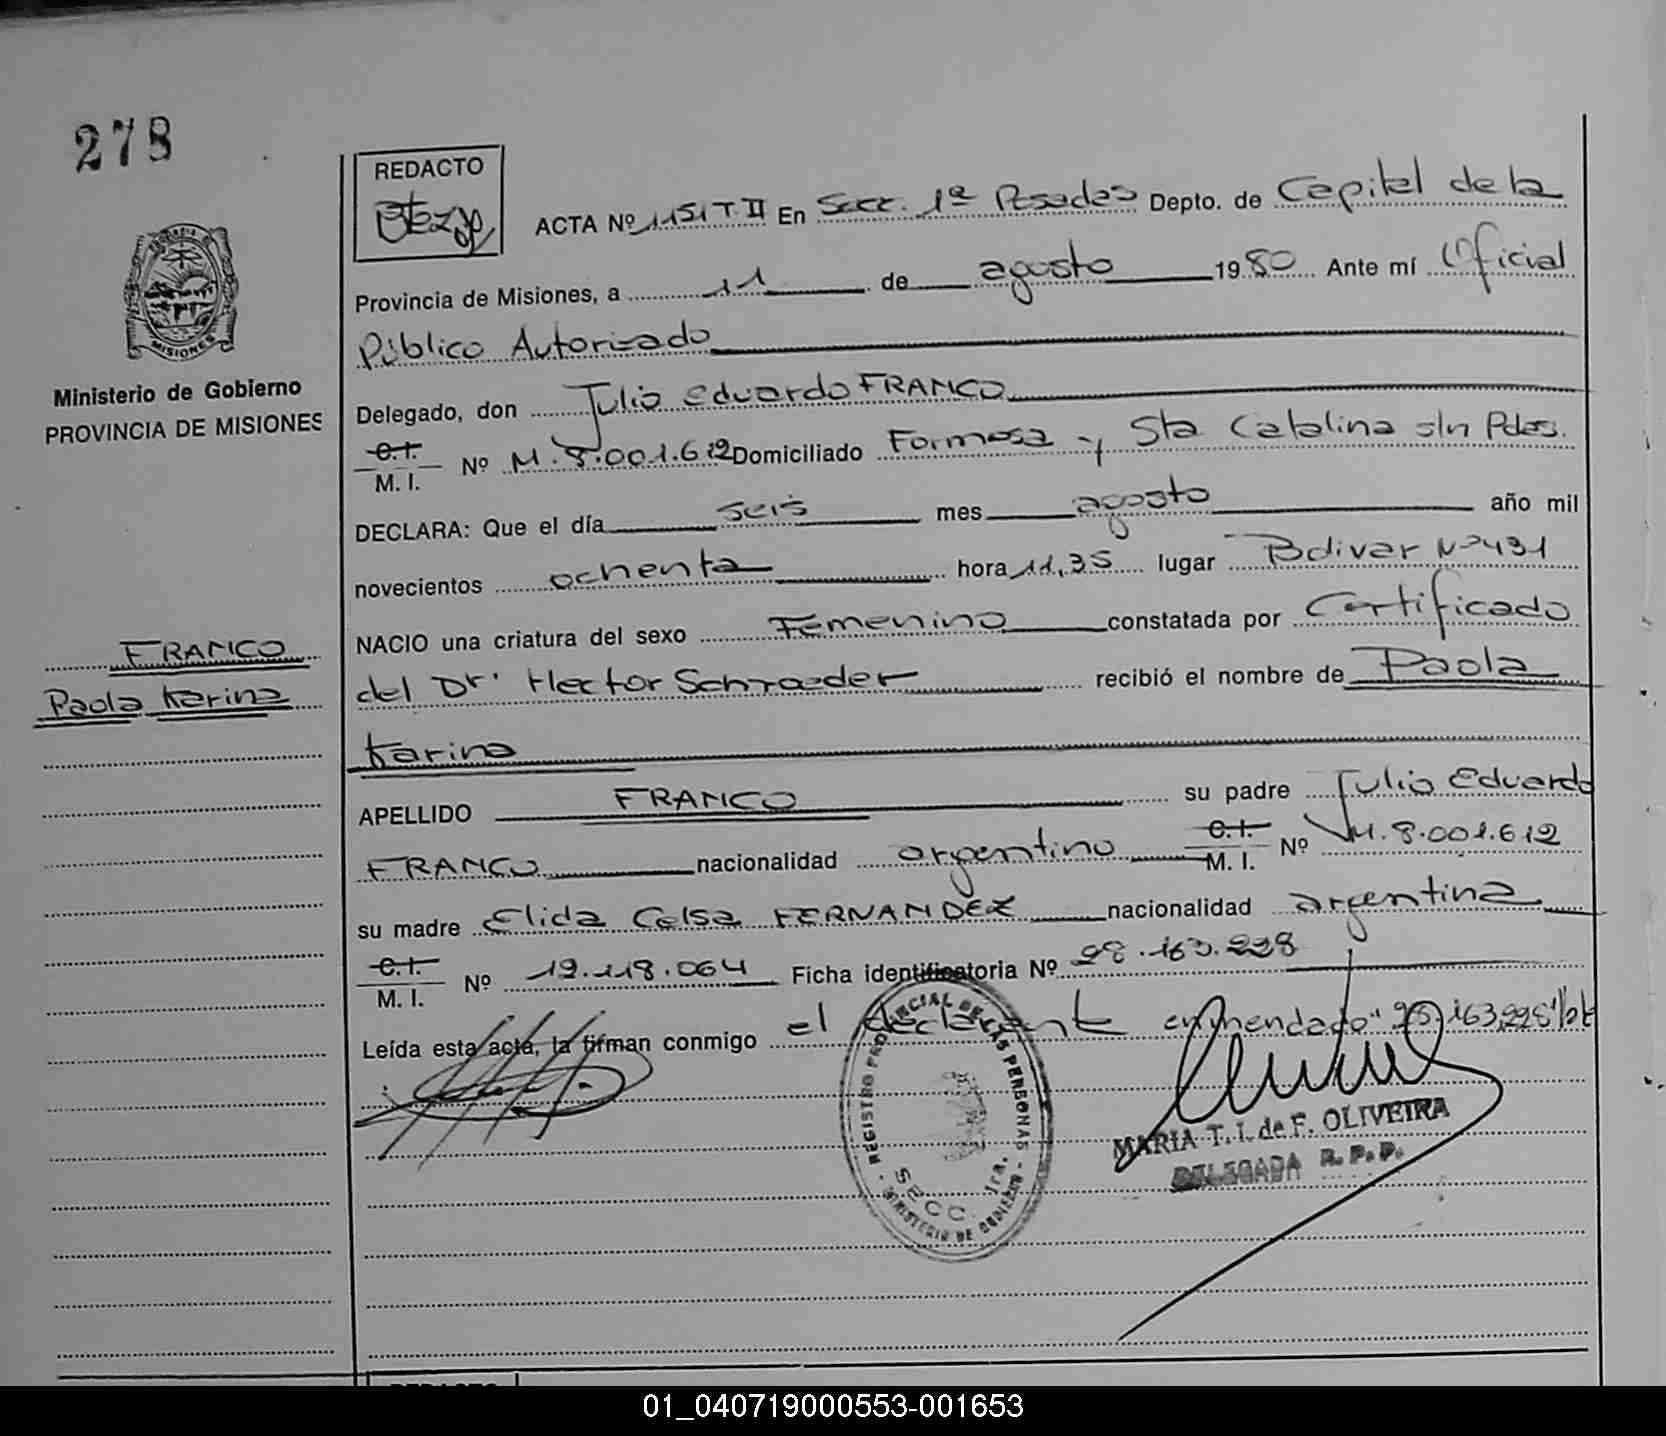 278
REDACTO
ACTA Nº 1151 T. II En Secc. 1ª Posadas Depto. de Capital de la
Provincia de Misiones, a 11 de agosto 1980 Ante mí Oficial
Público Autorizado
MISIONES
Ministerio de Gobierno
PROVINCIA DE MISIONES
Delegado, don Julio Eduardo FRANCO
C.I.
M. I. Nº M. 8.001.612 Domiciliado Formosa y Sta Catalina s/n Pdas.
DECLARA: Que el día seis mes agosto año mil
novecientos ochenta hora 11,35 lugar Bolivar Nº 431
NACIO una criatura del sexo Femenino constatada por Certificado
FRANCO
Paola Karina
del Dr. Hector Schraeder recibió el nombre de Paola
Karina
APELLIDO FRANCO su padre Julio Eduardo
FRANCO nacionalidad argentino C.I. M. I. Nº M. 8.001.612
su madre Elida Celsa FERNANDEZ nacionalidad argentina
C.I.
M. I. Nº 12.118.064 Ficha identificatoria Nº 28.163.228
Leída esta acta, la firman conmigo el declarante enmendado "28,163,228"
REGISTRO PROVINCIAL DE LAS PERSONAS
SECC. 1ra.
MINISTERIO DE GOBIERNO
MARIA T. I. de F. OLIVEIRA
DELEGADA R. P. P.
01_040719000553-001653